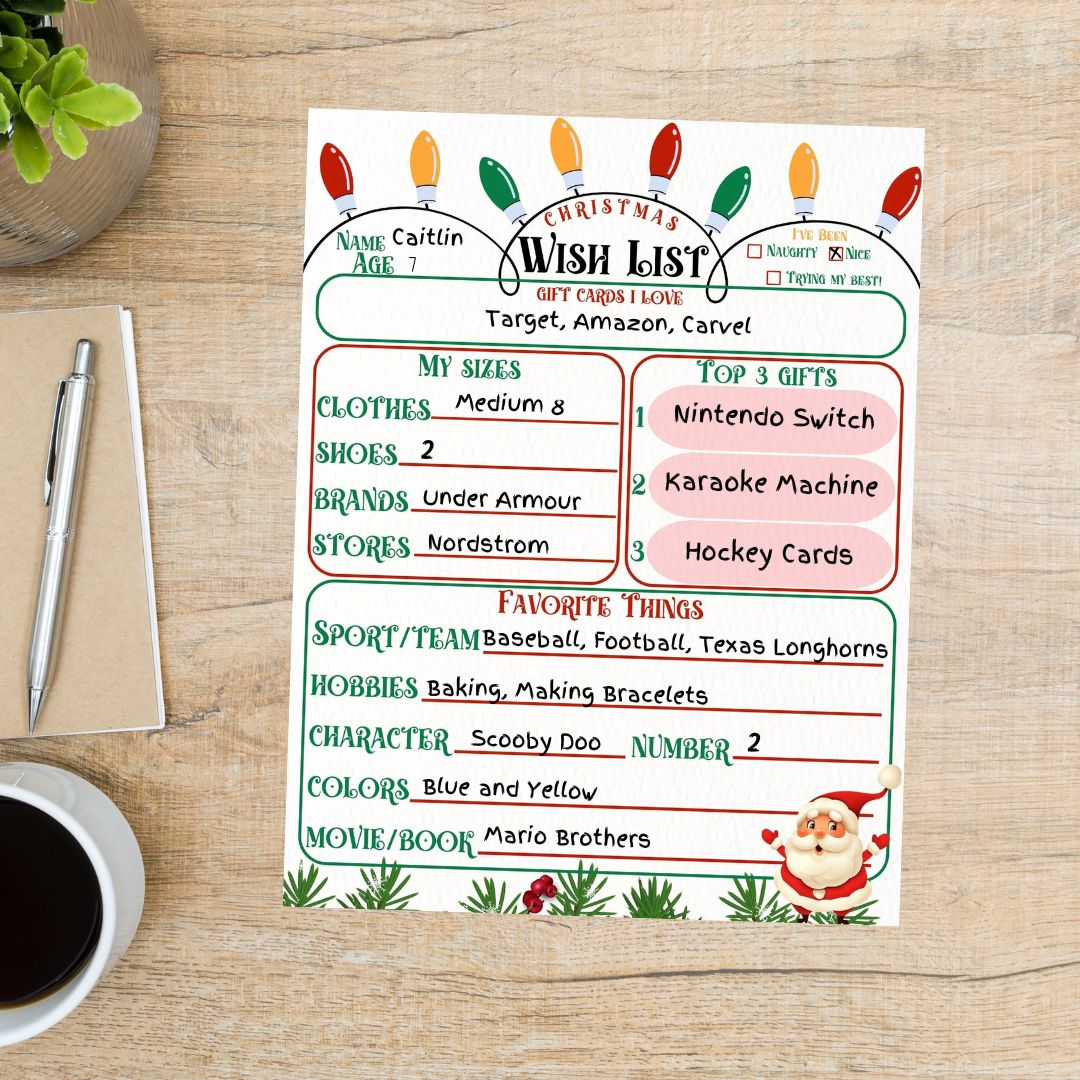 CHRISTMAS
WISH LIST
NAME Caitlin
AGE 7
I'VE BEEN
NAUGHTY NICE
TRYING MY BEST!
GIFT CARDS I LOVE
Target, Amazon, Carvel
MY SIZES
CLOTHES Medium 8
SHOES 2
BRANDS Under Armour
STORES Nordstrom
TOP 3 GIFTS
1 Nintendo Switch
2 Karaoke Machine
3 Hockey Cards
FAVORITE THINGS
SPORT/TEAM Baseball, Football, Texas Longhorns
HOBBIES Baking, Making Bracelets
CHARACTER Scooby Doo NUMBER 2
COLORS Blue and Yellow
MOVIE/BOOK Mario Brothers